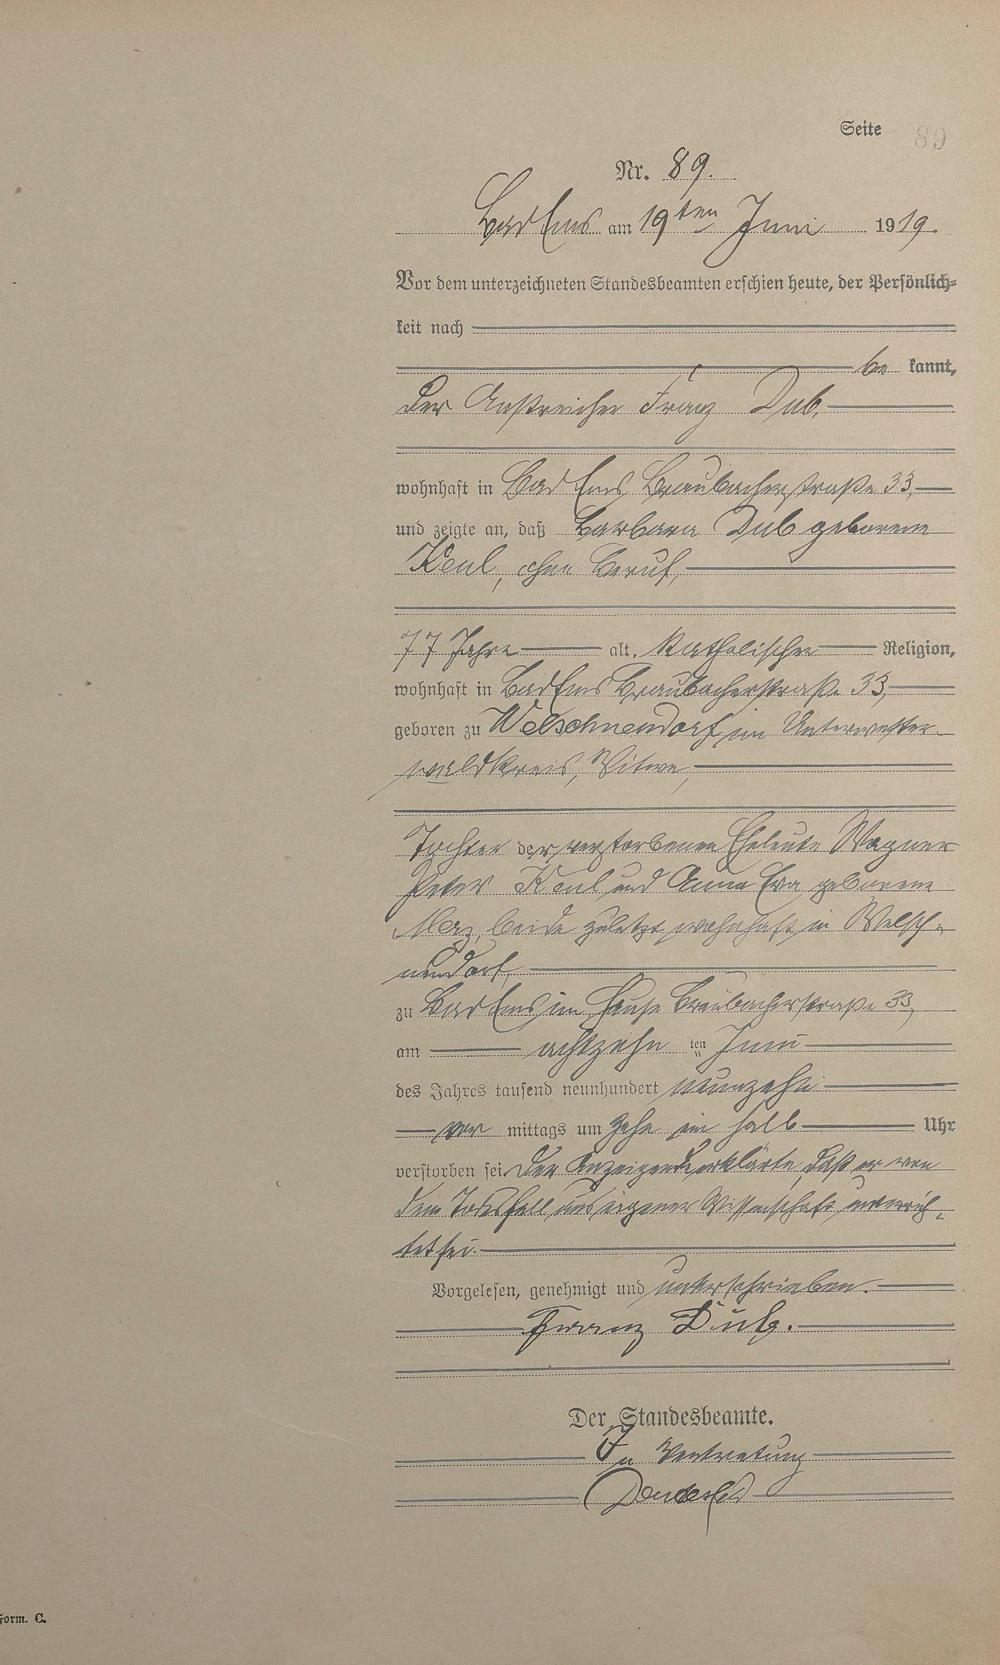 Seite 89
Nr. 89.
Bad Ems am 19ten Juni 1919.
Vor dem unterzeichneten Standesbeamten erschien heute, der Persönlich-
keit nach
be kannt,
der Anstreicher Franz Dub,
wohnhaft in Bad Ems, Braubacherstraße 33,
und zeigte an, daß Barbara Dub geborene
Keul, ohne Beruf,
77 Jahre alt, katholischer Religion,
wohnhaft in Bad Ems Braubacherstraße 33,
geboren zu Welschneudorf im Unterwester-
waldkreis, Witwe,
Tochter der verstorbenen Eheleute Wagner
Peter Keul und Anna Eva geborene
beide zuletzt wohnhaft in Welsch-
neudorf,
zu Bad Ems im Hause Braubacherstraße 33,
am achtzehn ten Juni
des Jahres tausend neunhundert neunzehn
vor mittags um zehn ein halb Uhr
verstorben sei. Der Anzeigende erklärte, daß er von
dem Todesfall aus eigener Wissenschaft unterrich-
tet sei.
Vorgelesen, genehmigt und unterschrieben.
Franz Dub.
Der Standesbeamte.
In Vertretung
Form. C.